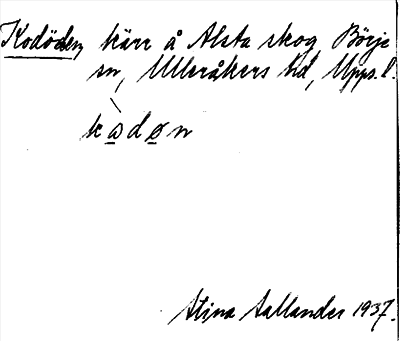 Kodöden, kärr å Alsta skog Börje
sn, Ulleråkers hd, Upps. l.
kòdøn
Stina Sallander 1937.